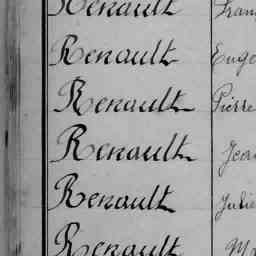 Renault Fran
Renault Euge
Renault Pierre
Renault Jean
Renault Julie
Renault Ma